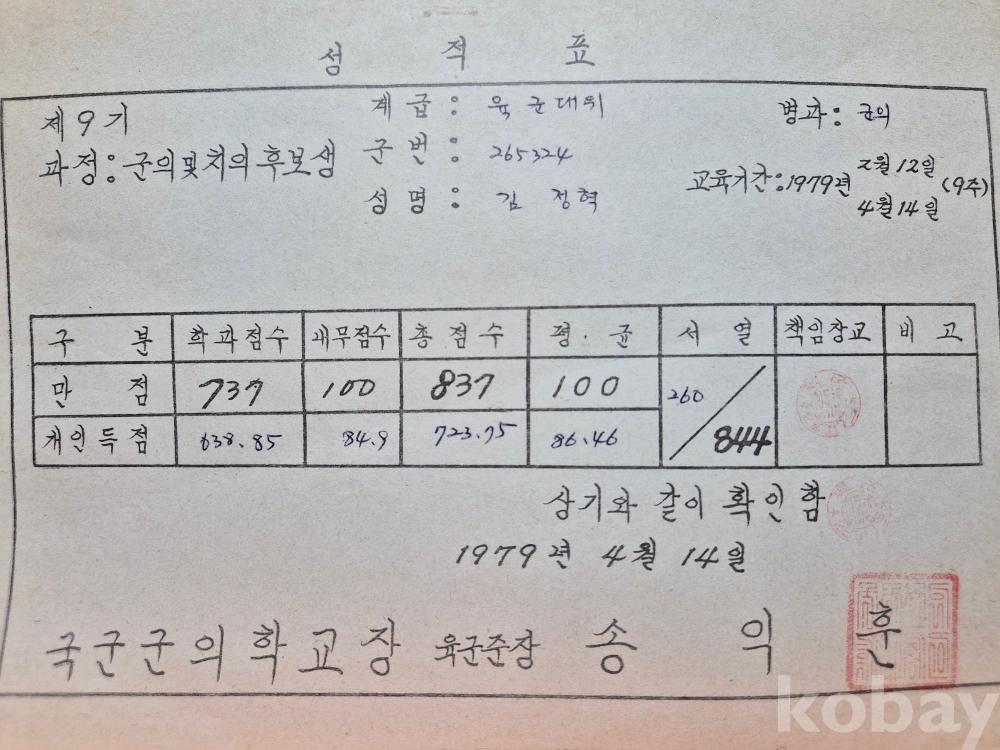 성 적 표
제9기
과정: 군의및치의후보생
계급: 육군대위
군번: 265324
성명: 김 정 혁
병과: 군의
교육기간: 1979년 2월 12일
4월 14일 (9주)
구 분 학과점수 내무점수 총점수 평.균 서 열 책임장교 비 고
만 점 737 100 837 100 260/844
개인득점 638.85 84.9 723.75 86.46
상기와 같이 확인함
1979년 4월 14일
국군군의학교장 육군준장 송 익 훈
kobay